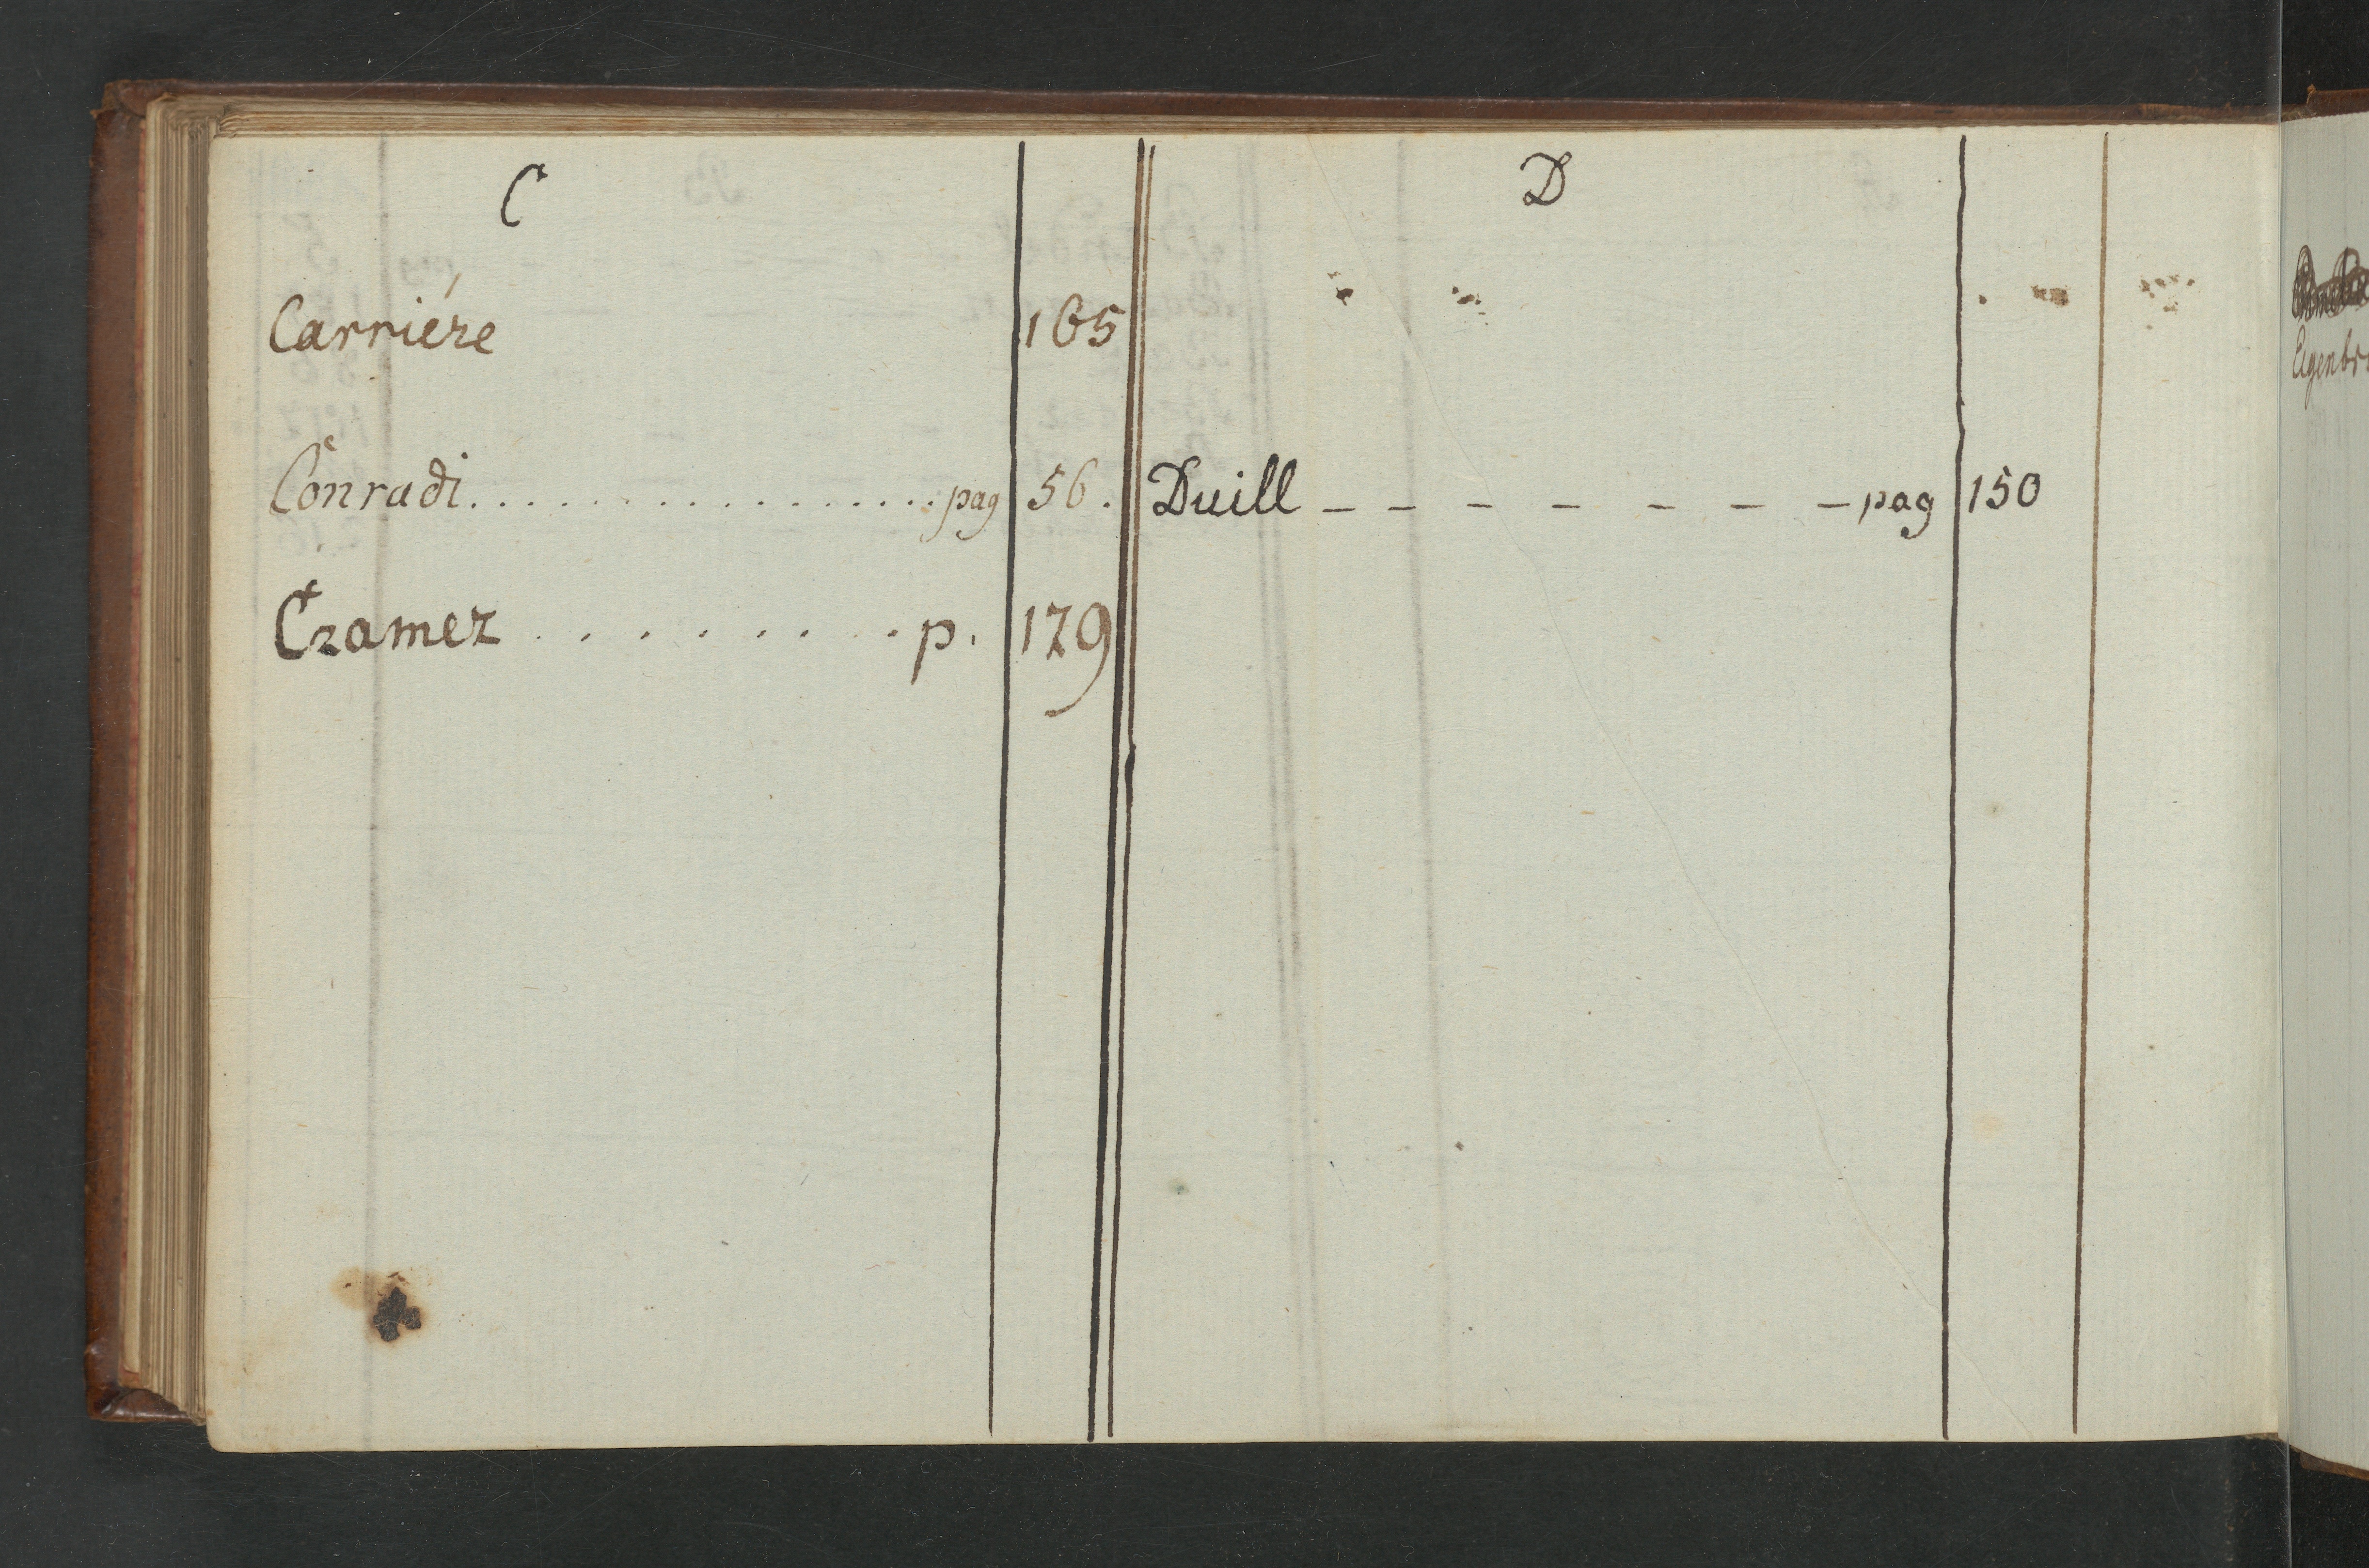 C
Carriére 165
Conradi................. pag 56.
Cramer ......... p. 179
D
Duill - - - - - - - pag 150
Eigenbr